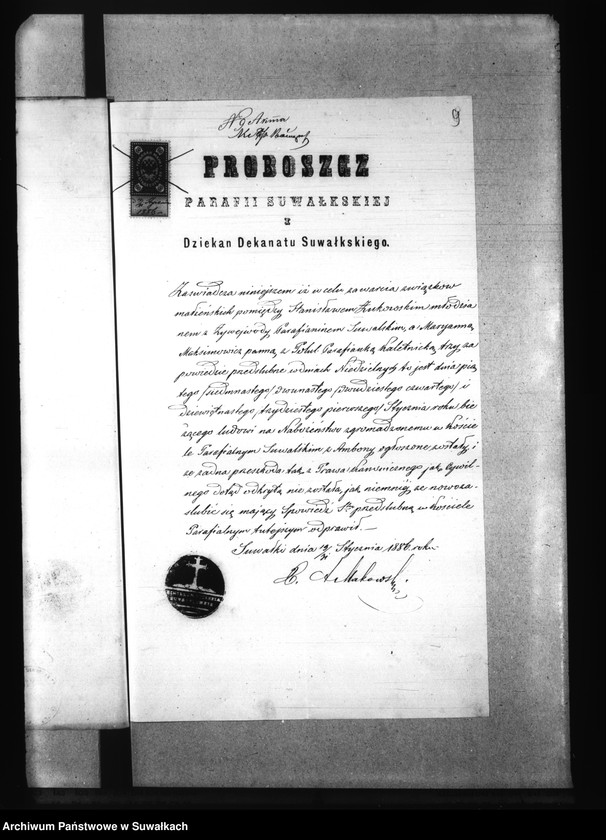 N 9 Aktu
9
PROBOSZCZ
PARAFII SUWAŁKSKIEJ
I
Dziekan Dekanatu Suwałkskiego.
Zaświadcza niniejszem iż w celu zawarcia związków
małżeńskich pomiędzy Stanisławem Żukowskim młodzia
nem z Żywejwody Parafianinem Suwalskim, a Maryanną
Maksimowicz panną z Potul Parafianką Kaletnicką, trzy za
powiedzie przedślubne w dniach Niedzielnych to jest dnia pią
tego /siedmnastego/ dwunastego /dwudziestego czwartego/ i
dziewiętnastego /trzydziestego pierwszego/ Stycznia roku bie
żącego ludowi na Nabożeństwo zgromadzonemu w koście
le Parafialnym Suwalskim z Ambony ogłoszone zostały, i
że żadna przeszkoda tak z Prawa kanonicznego jak Cywil
nego dotąd odkrytą nie została, jak niemniej, że nowoza
ślubić się mający Spowiedź Stą przedślubną w kościele
Parafialnym tutejszym odprawił.—
Suwałki dnia 19/31 Stycznia 1886 roku.
X. A Makowski
Archiwum Państwowe w Suwałkach